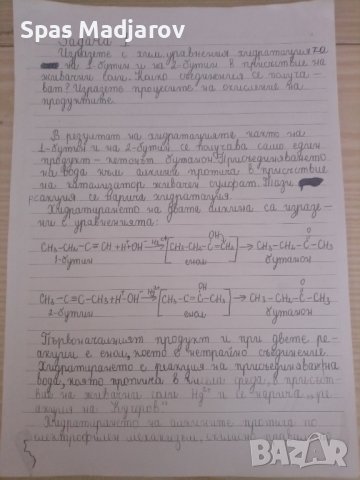 Spas Madjarov
Задача
Изразете с хим. уравнения хидратацията
на 1-бутин и на 2-бутин в присъствие на
живачни соли. Колко съединения се получа-
ват? Изразете процесите на окисление на
продуктите.
В резултат на хидратацията, както на
1-бутин и на 2-бутин се получава само един
продукт - кетонът бутанон. Присъединяването
на вода към алкини протича в присъствие
на катализатор живачен сулфат. Тази
реакция се нарича хидратация.
Хидратирането на двата алкина са изразе-
ни с уравненията:
OH O
CH₃-CH₂-C≡CH + H⁺OH⁻ Hg²⁺→ [CH₃-CH₂-C=CH₂] → CH₃-CH₂-C-CH₃
1-бутин енол бутанон
OH O
CH₃-C≡C-CH₃+H⁺OH⁻ Hg²⁺→ [CH₃-C=C-CH₃] → CH₃-CH₂-C-CH₃
2-бутин енол бутанон
Първоначалният продукт и при двете ре-
акции е енол, което е нетрайно съединение.
Хидратирането е реакция на присъединяване на
вода, която протича в кисела среда, в присъст-
вие на живачни соли Hg²⁺ и се нарича „ре-
акция на Кучеров".
Хидратирането на алкините протича по
електрофилен механизъм,
bazar.bg